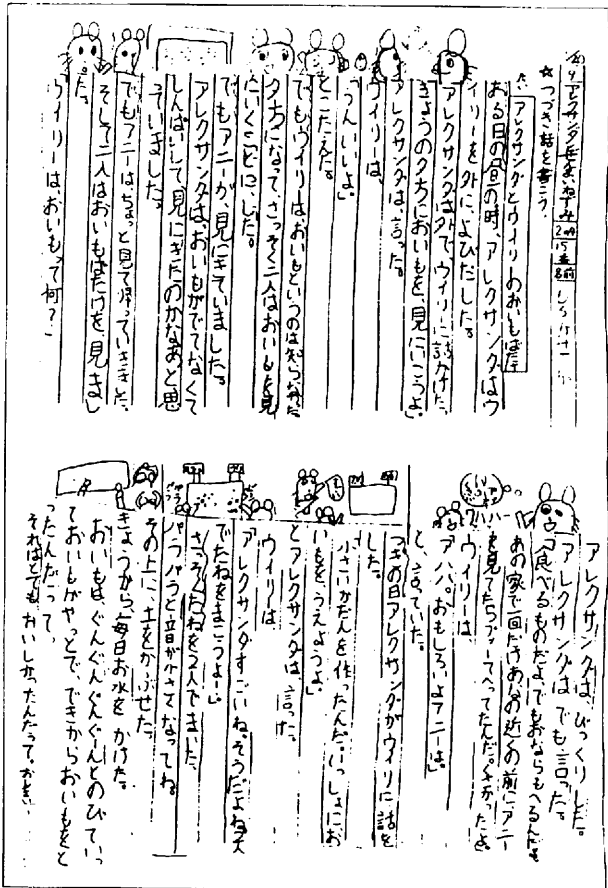 アレクサンダとぜんまいねずみ 2の4 15番 名前
☆つづき話を書こう。
だい アレクサンダとウイリーのおいもばたけ
ある日の昼の時、アレクサンダはウ
イリーを外に、よびだした。
アレクサンダは外で、ウイリーに話かけた。
きょうの夕方においもを、見にいこうよ。」
アレクサンダは、言った。
ウイリーは、
「うんいいよ。」
とこたえた。
でもウイリーはおいもというのは知らなかった。
夕方になって、さっそく二人はおいもを見
にいくことに、した。
でもアニーが、見にきていました。
アレクサンダはおいもがでてなくて
しんぱいして、見にきたのかなあと思
っていました。
でもアニーは、ちょっと見て帰っていきました。
そして二人はおいもばたけを、見まし
た。
ウイリーは、おいもって何?」
アレクサンダは、びっくりした。
アレクサンダはでも言った。
「食べるものだよ、でもおならもへるんだよ
あの家で一回だけあなの近くの前に、アニー
を見てたらプーてへってたんだ。くさかったよ。
ウイリーは
アハハ。おもしろいよアニーは。」
と、言っていた。
つぎの日アレクサンダがウイリーに話を
した。
小さいかだんを作ったんだ。いっしょにお
いもを、うえようよ。」
とアレクサンダは、言った。
ウイリーは
アレクサンダすごいね。そうだよね
でたねをまこうよー。」
さっそくたねを2人でまいた。
パラパラと音が小さくなってね。
その上に、土をかぶせた。
きょうから、毎日お水を かけた。
おいもは、ぐんぐんぐんぐーんとのびていっ
ておいもがやっとで、できからおいもをと
ったんだって。
それはとても おいしかったんだって。おしまい